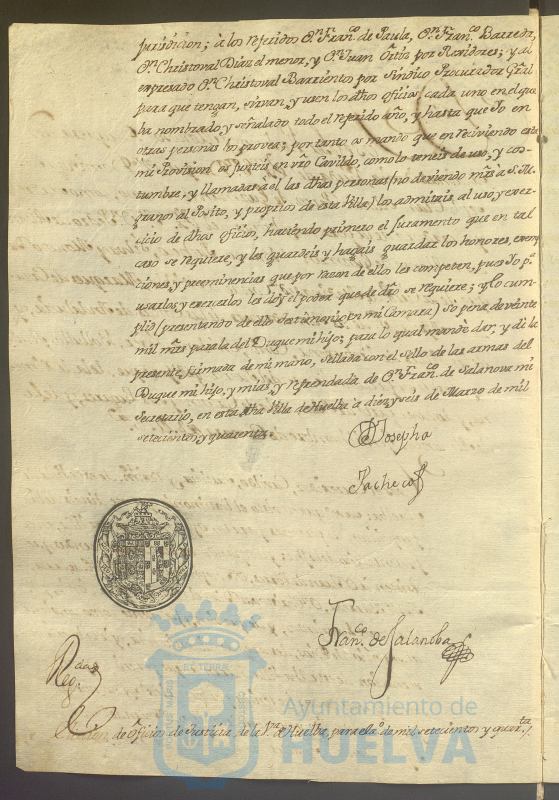 Jurisdicion; à los referidos Dn. Franco. de Paula, Dn. Franco. Barreda,
Dn. Christoval Diaz el menor, y Dn. Juan Ortiz por Rexidores; y al
expresado Dn. Christoval Barrientos por Sindico Procurador Gral
para que tengan, sirvan, y usen los dhos oficios, cada uno en el que
ha nombrado, y señalado todo el referido año, y hasta que Yo en
otras personas los provea; por tanto os mando que en reciviendo esta
mi Provision os junteis en vro Cavildo, como lo teneis de uso, y cos-
tumbre, y llamadas a el las dhas personas (no deviendo mrs a S. M.
al Posito, y proprios de esta Villa) los admitais al uso, y exer-
cicio de dhos oficios, haciendo primero el Juramento que en tal
caso se requiere, y les guardeis y hagais guardar los honores, exemp-
ciones, y preeminencias que por razon de ello les competen, pues Yo pa.
usarlos, y exercerlos les doy el poder que de dro se requiere; y lo cum-
plid (presentando de ello testimonio en mi Camara) so pena de veinte
mil mrs para la del Duque mi hijo; para lo qual mande dar, y di la
presente, firmada de mi mano, sellada con el Sello de las armas del
Duque mi hijo, y mias, y refrendada de Dn. Franco. de Salanova mi
Secretario, en esta dha Villa de Huelba à diez y seis de Marzo de mil
setecientos, y quarenta
Josepha
Pacheco
Franco. de Salanoba
Rda
Reg.
de Oficios de Justicia, de la Va. de Huelba, para el ao. de mil setecientos y quarta.
Ayuntamiento de
HUELVA